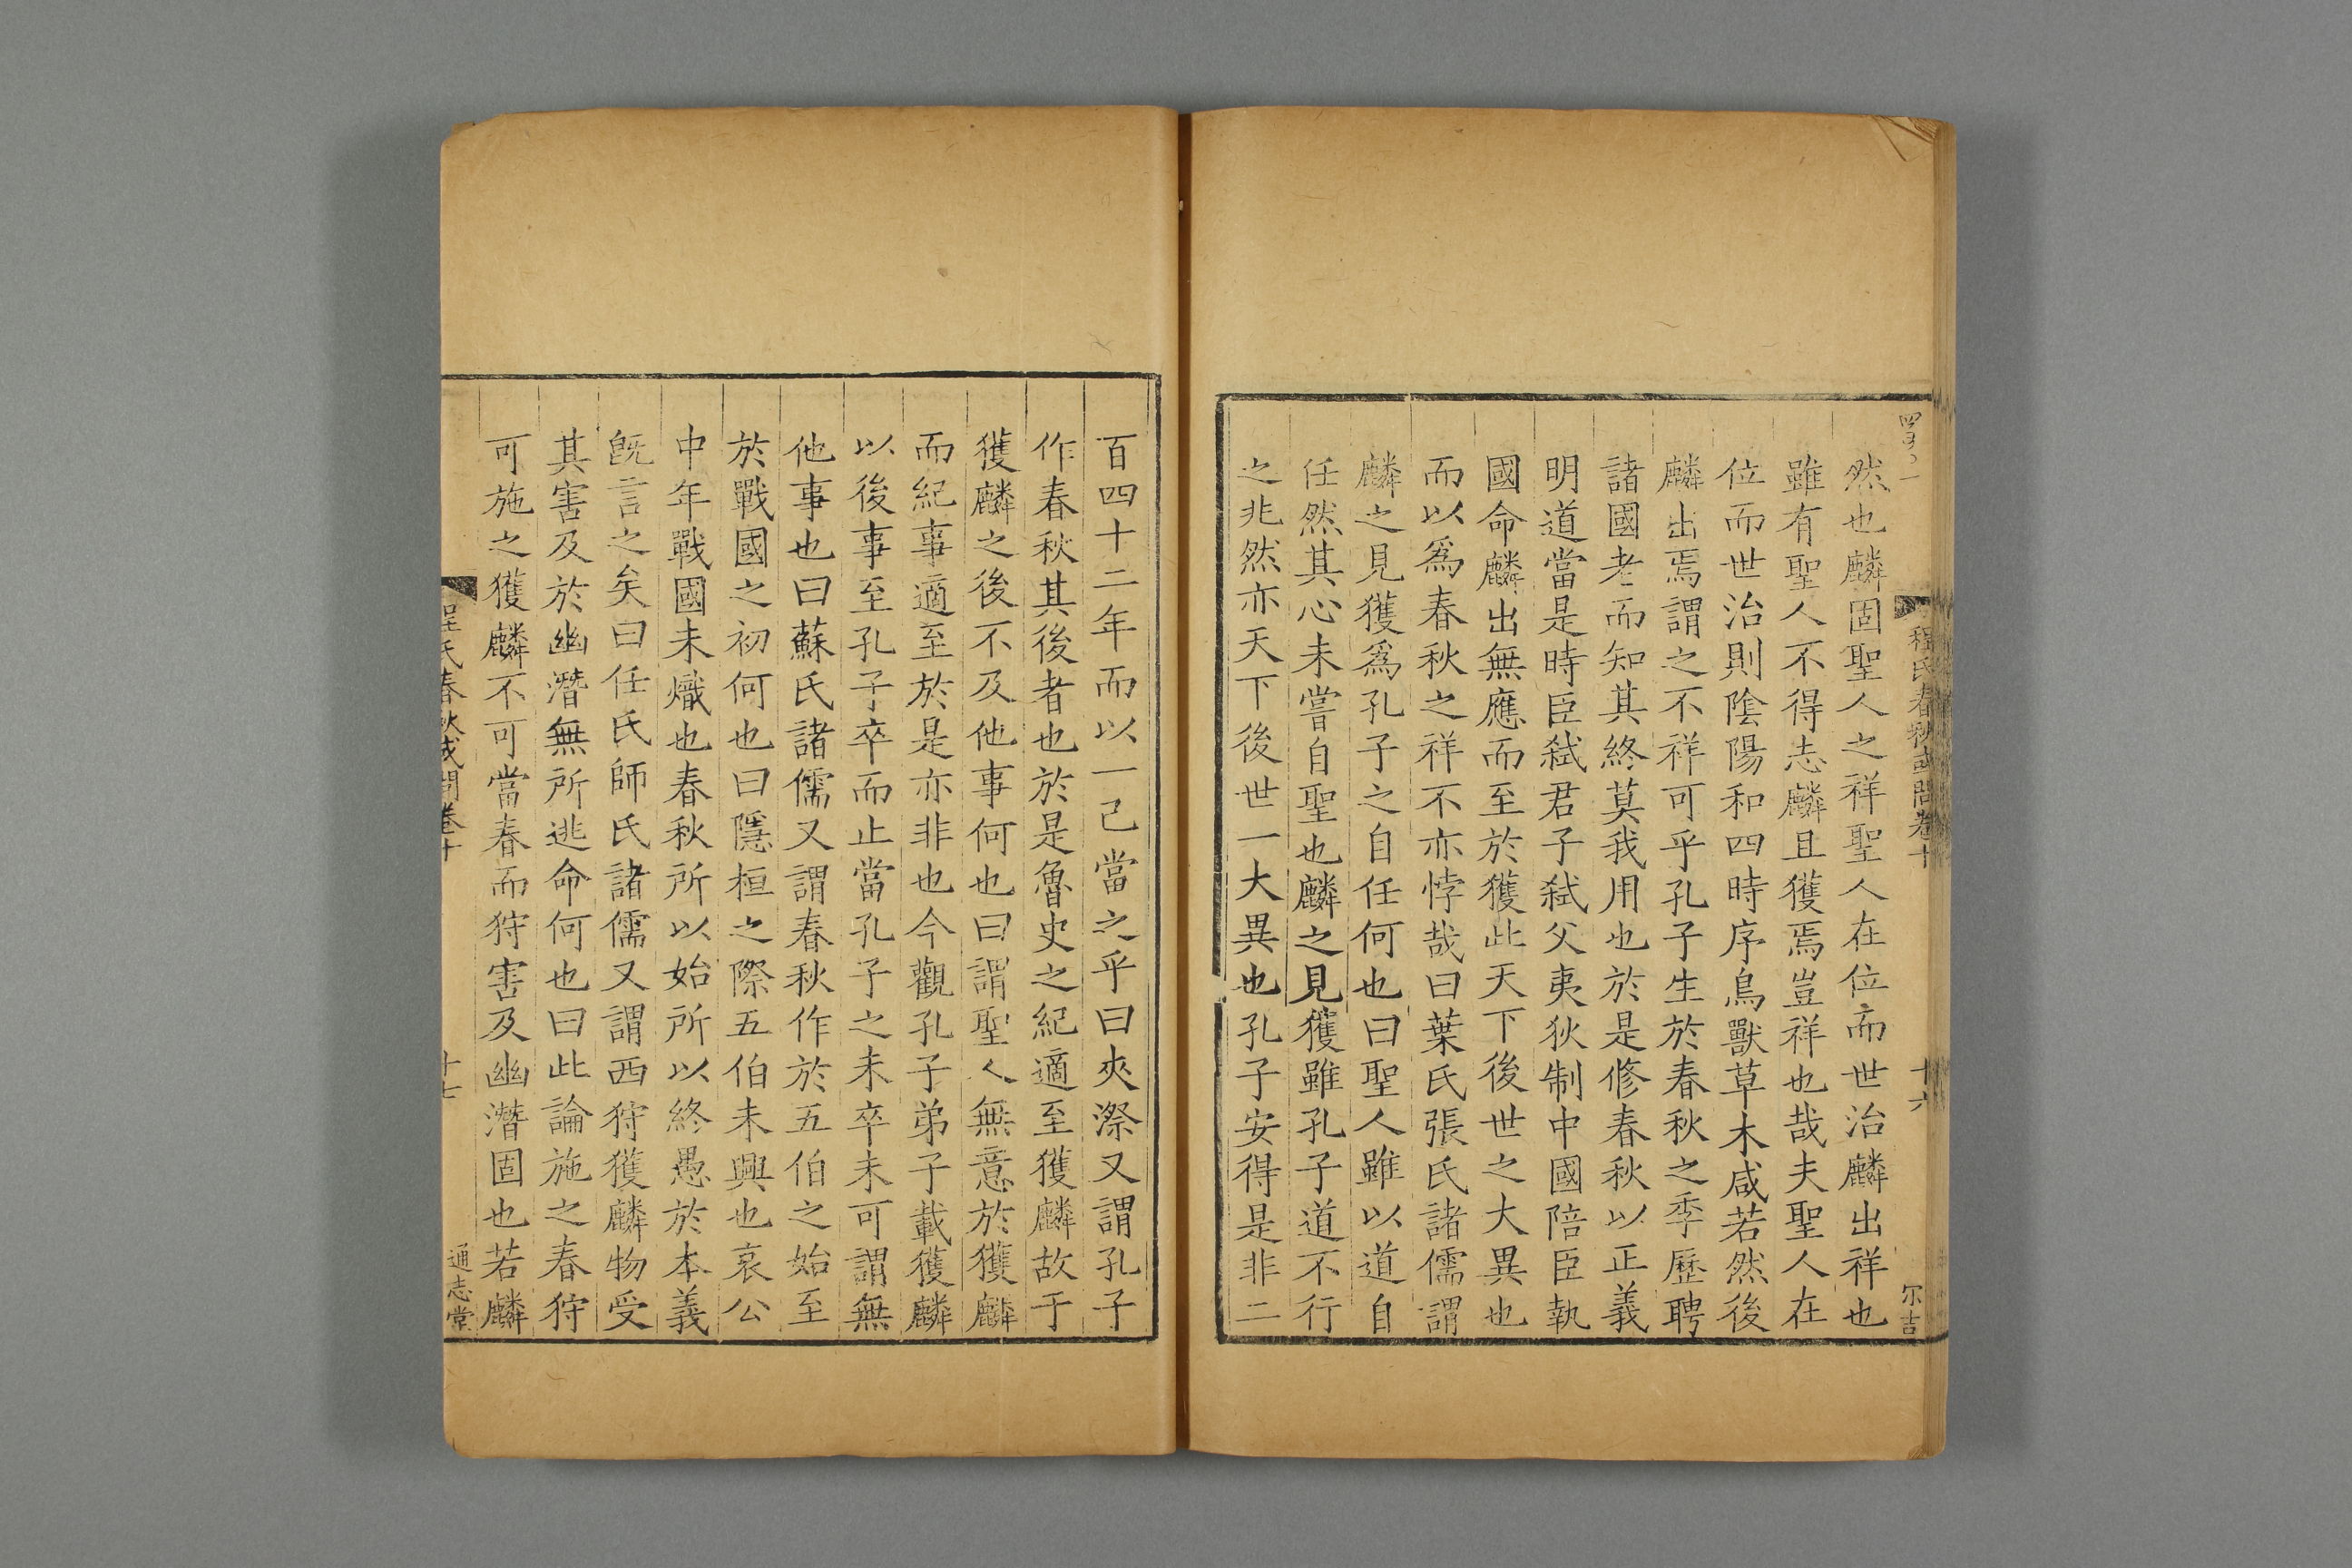 然也麟固聖人之祥聖人在位而世治麟出祥也
雖有聖人不得志麟且獲焉豈祥也哉夫聖人在
位而世治則陰陽和四時序鳥獸草木咸若然後
麟出焉謂之不祥可乎孔子生於春秋之季歷聘
諸國老而知其終莫我用也於是修春秋以正義
明道當是時臣弑君子弑父夷狄制中國陪臣執
國命麟出無應而至於獲此天下後世之大異也
而以爲春秋之祥不亦悖哉曰葉氏張氏諸儒謂
麟之見獲爲孔子之自任何也曰聖人雖以道自
任然其心未嘗自聖也麟之見獲雖孔子道不行
之兆然亦天下後世一大異也孔子安得是非二
程氏春秋或問卷十
十六
尔吉
百四十二年而以一己當之乎曰夾漈又謂孔子
作春秋其後者也於是魯史之紀適至獲麟故于
獲麟之後不及他事何也曰謂聖人無意於獲麟
而紀事適至於是亦非也今觀孔子弟子載獲麟
以後事至孔子卒而止當孔子之未卒未可謂無
他事也曰蘇氏諸儒又謂春秋作於五伯之始至
於戰國之初何也曰隱桓之際五伯未興也哀公
中年戰國未熾也春秋所以始所以終愚於本義
旣言之矣曰任氏師氏諸儒又謂西狩獲麟物受
其害及於幽潛無所逃命何也曰此論施之春狩
可施之獲麟不可當春而狩害及幽潛固也若麟
程氏春秋或問卷十
十七
通志堂